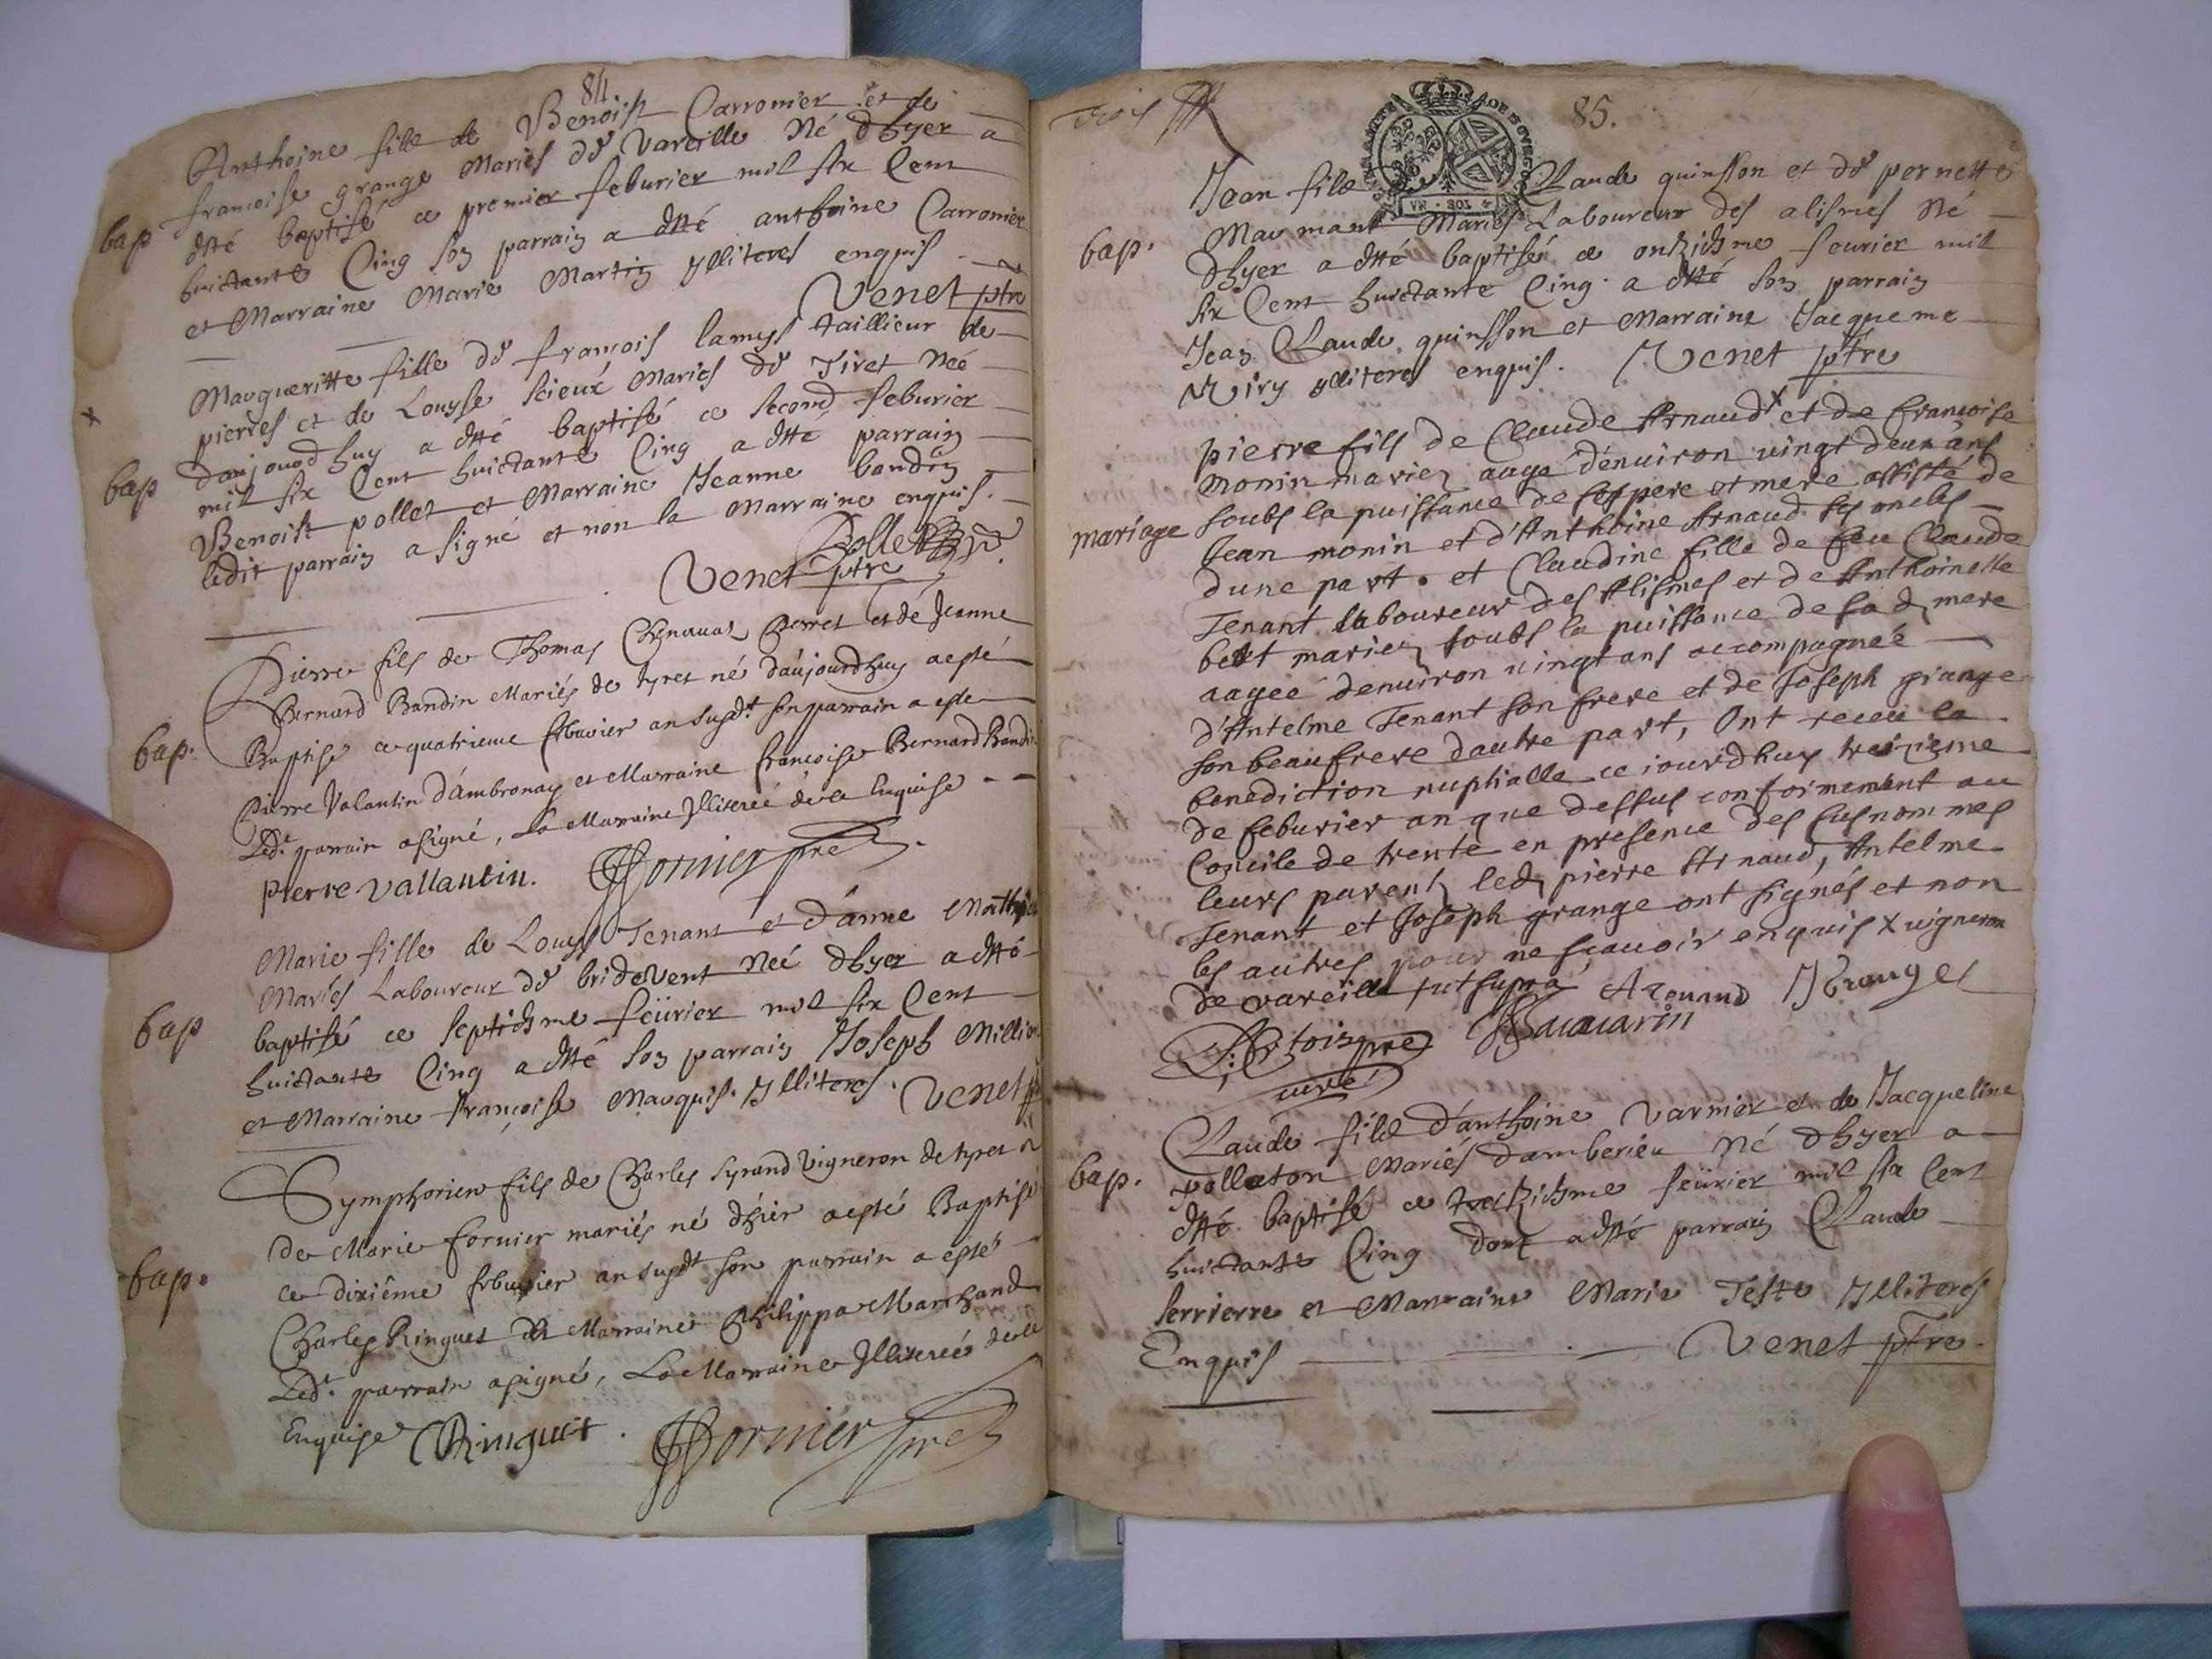 84
Anthoine filz de Benoist Carronier et de
francoise grange Mariés de Vareille Né dhyer a
bap
esté baptisé ce premier feburier mil six Cent
huictante Cinq son parrain a esté anthoine Carronier
et Marraine Marie Martin ylliteres enquis
Venet ptre
Margueritte fille de françois lamys taillieur de
x
pierres et de Louyse Scieux Mariés de Tiret Née
daujourdhuy a esté baptisé ce second feburier
bap
mil six Cent huictante Cinq a esté parrain
Benoist pollet et Marraine Jeanne bandin
ledit parrain a signé et non la Marraine enquis.
Pollet
Venet ptre
Pierre fils de Thomas Chenavaz Perret et de Jeanne
Bernard Bandin Mariés de tyret né daujourdhuy a esté
bap.
Baptisé ce quatrieme febvrier an susdt son parrain a esté
Pierre Valantin d'Ambronay et Marraine francoise Bernard Bandin
Ledt. parrain a signé, La Marraine Illiterée de ce Enquise
pierre vallantin. Fornier pre
Marie fille de Louys Tenant et d'anne
Mariés Laboureur de bridevent Née dhyer a esté
bap
baptisé ce septiesme feürier mil six Cent
huictante Cinq a esté son parrain Joseph
et Marraine françoise Marquis. Ylliteres. Venet
Symphorien fils de Charles Syrand Vigneron de tyret &
de Marie fornier mariés né dhier a esté Baptisé
bap.
ce dixiême febvrier an susdt son parrain a esté
Charles Ringuet et Marraine Philippa Marchand
Ledt. parrain a signé, La Marraine Illiterée de ce
Enquise CRinguet. Fornier pre
trois
85.
Jean filz de Claude quinsson et de pernette
Marmant Mariés Laboureur des alismes Né
bap.
dhyer a esté baptisé ce onziesme feurier mil
six Cent huictante Cinq. a esté son parrain
Jean Claude quinsson et Marraine Jacqueme
Niry ylliteres enquis. Venet ptre
pierre fils de Claude Arnaud x et de francoise
monin mariez aagé d'enuiron vingt deux ans
soubs la puissance de ses pere et mere assisté de
mariage
Jean monin et d'Anthoine Arnaud ses oncles
dune part. et Claudine fille de feu Claude
Tenant laboureur des Alismes et de Anthoinette
bert mariez soubs la puissance de sad. mere
aagée denuiron vingt ans accompagnée
d'Antelme Tenant son frere et de Joseph grange
son beaufrere dautre part, Ont receu la
benediction nuptialle ce iourdhuy treizieme
de feburier an que dessus conformement au
Concile de trente en presence des susnommes
leurs parents led. pierre Arnaud, Antelme
Tenant et Joseph grange ont signés et non
les autres pour ne scauoir enquis x vigneron
de vareille
Arenaud J Grange
Bauarin
pre
curé
Claude filz d'anthoine Varnier et de Jacqueline
bap.
pollaton Mariés damberieu Né dhyer a
esté baptisé ce treiziesme feürier mil six Cent
huictante Cinq dont a esté parrain Claude
serrierre et Marraine Marie Teste Ylliteres
Enquis Venet ptre.